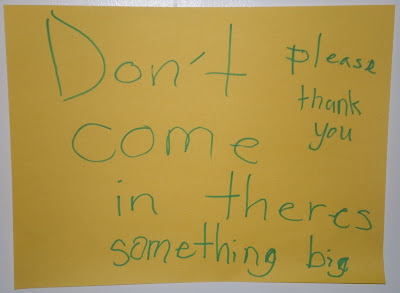 Don't
come
in theres
something big
please
thank
you